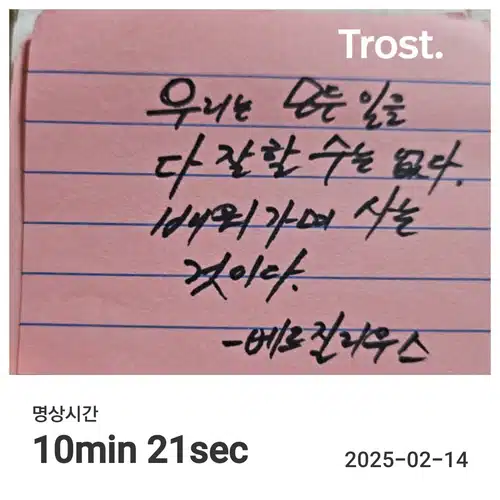 Trost.
우리는 모든 일을
다 잘할 수는 없다.
배워가며 사는
것이다.
-베르질리우스
명상시간
10min 21sec
2025-02-14